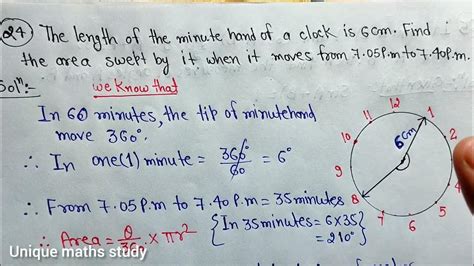 24 The length of the minute hand of a clock is 6cm. Find
the area swept by it when it moves from 7.05P.m to 7.40P.m.
Solⁿ:- we know that
In 60 minutes, the tip of minutehand
move 360°.
∴ In one(1) minute = 360°/60 = 6°
∴ From 7.05P.m to 7.40P.m = 35 minutes
∴ Area = θ/360 × πr² {In 35 minutes = 6×35
= 210°}
12
11 1
10 2
6cm
9
8 4
7 5
6
Unique maths study